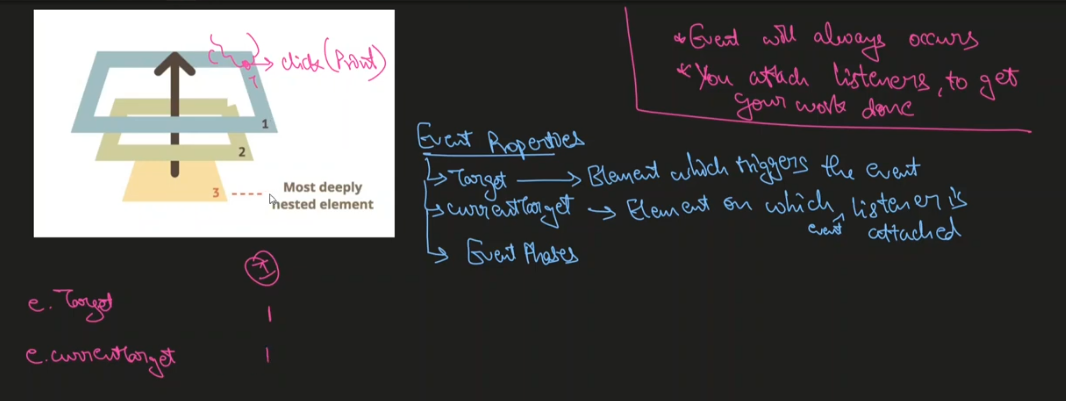 click (Print)
1
1
2
3
Most deeply
nested element
* Event will always occurs
* You attach listeners, to get
your work done
Event Properties
Target → Element which triggers the event
currentTarget → Element on which event listener is
attached
Event Phases
1
e. Target 1
e. currentTarget 1